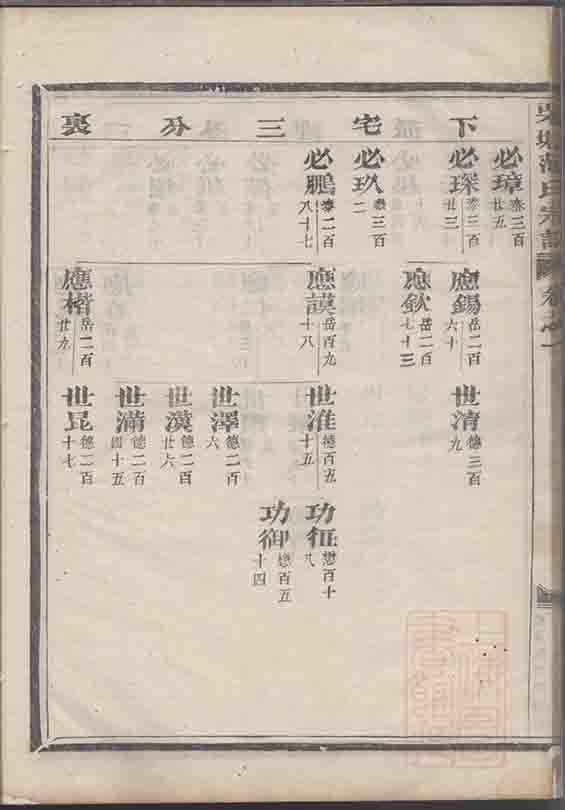 下宅三分裏
必璋 泰三百廿五
必琛 泰三百廿三
必玖 泰三百二
必鵬 泰二百八十七
應錫 岳二百六十
應欽 岳二百七十三
應謨 岳百九十八
應楷 岳二百廿九
世清 德三百九
世淮 德百五十五
世澤 德二百六
世漢 德二百廿六
世滿 德二百四十五
世昆 德二百十七
功征 懋百十八
功御 懋百五十四